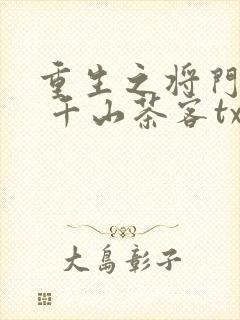 重生之将门
千山茶客tx
大島彰子